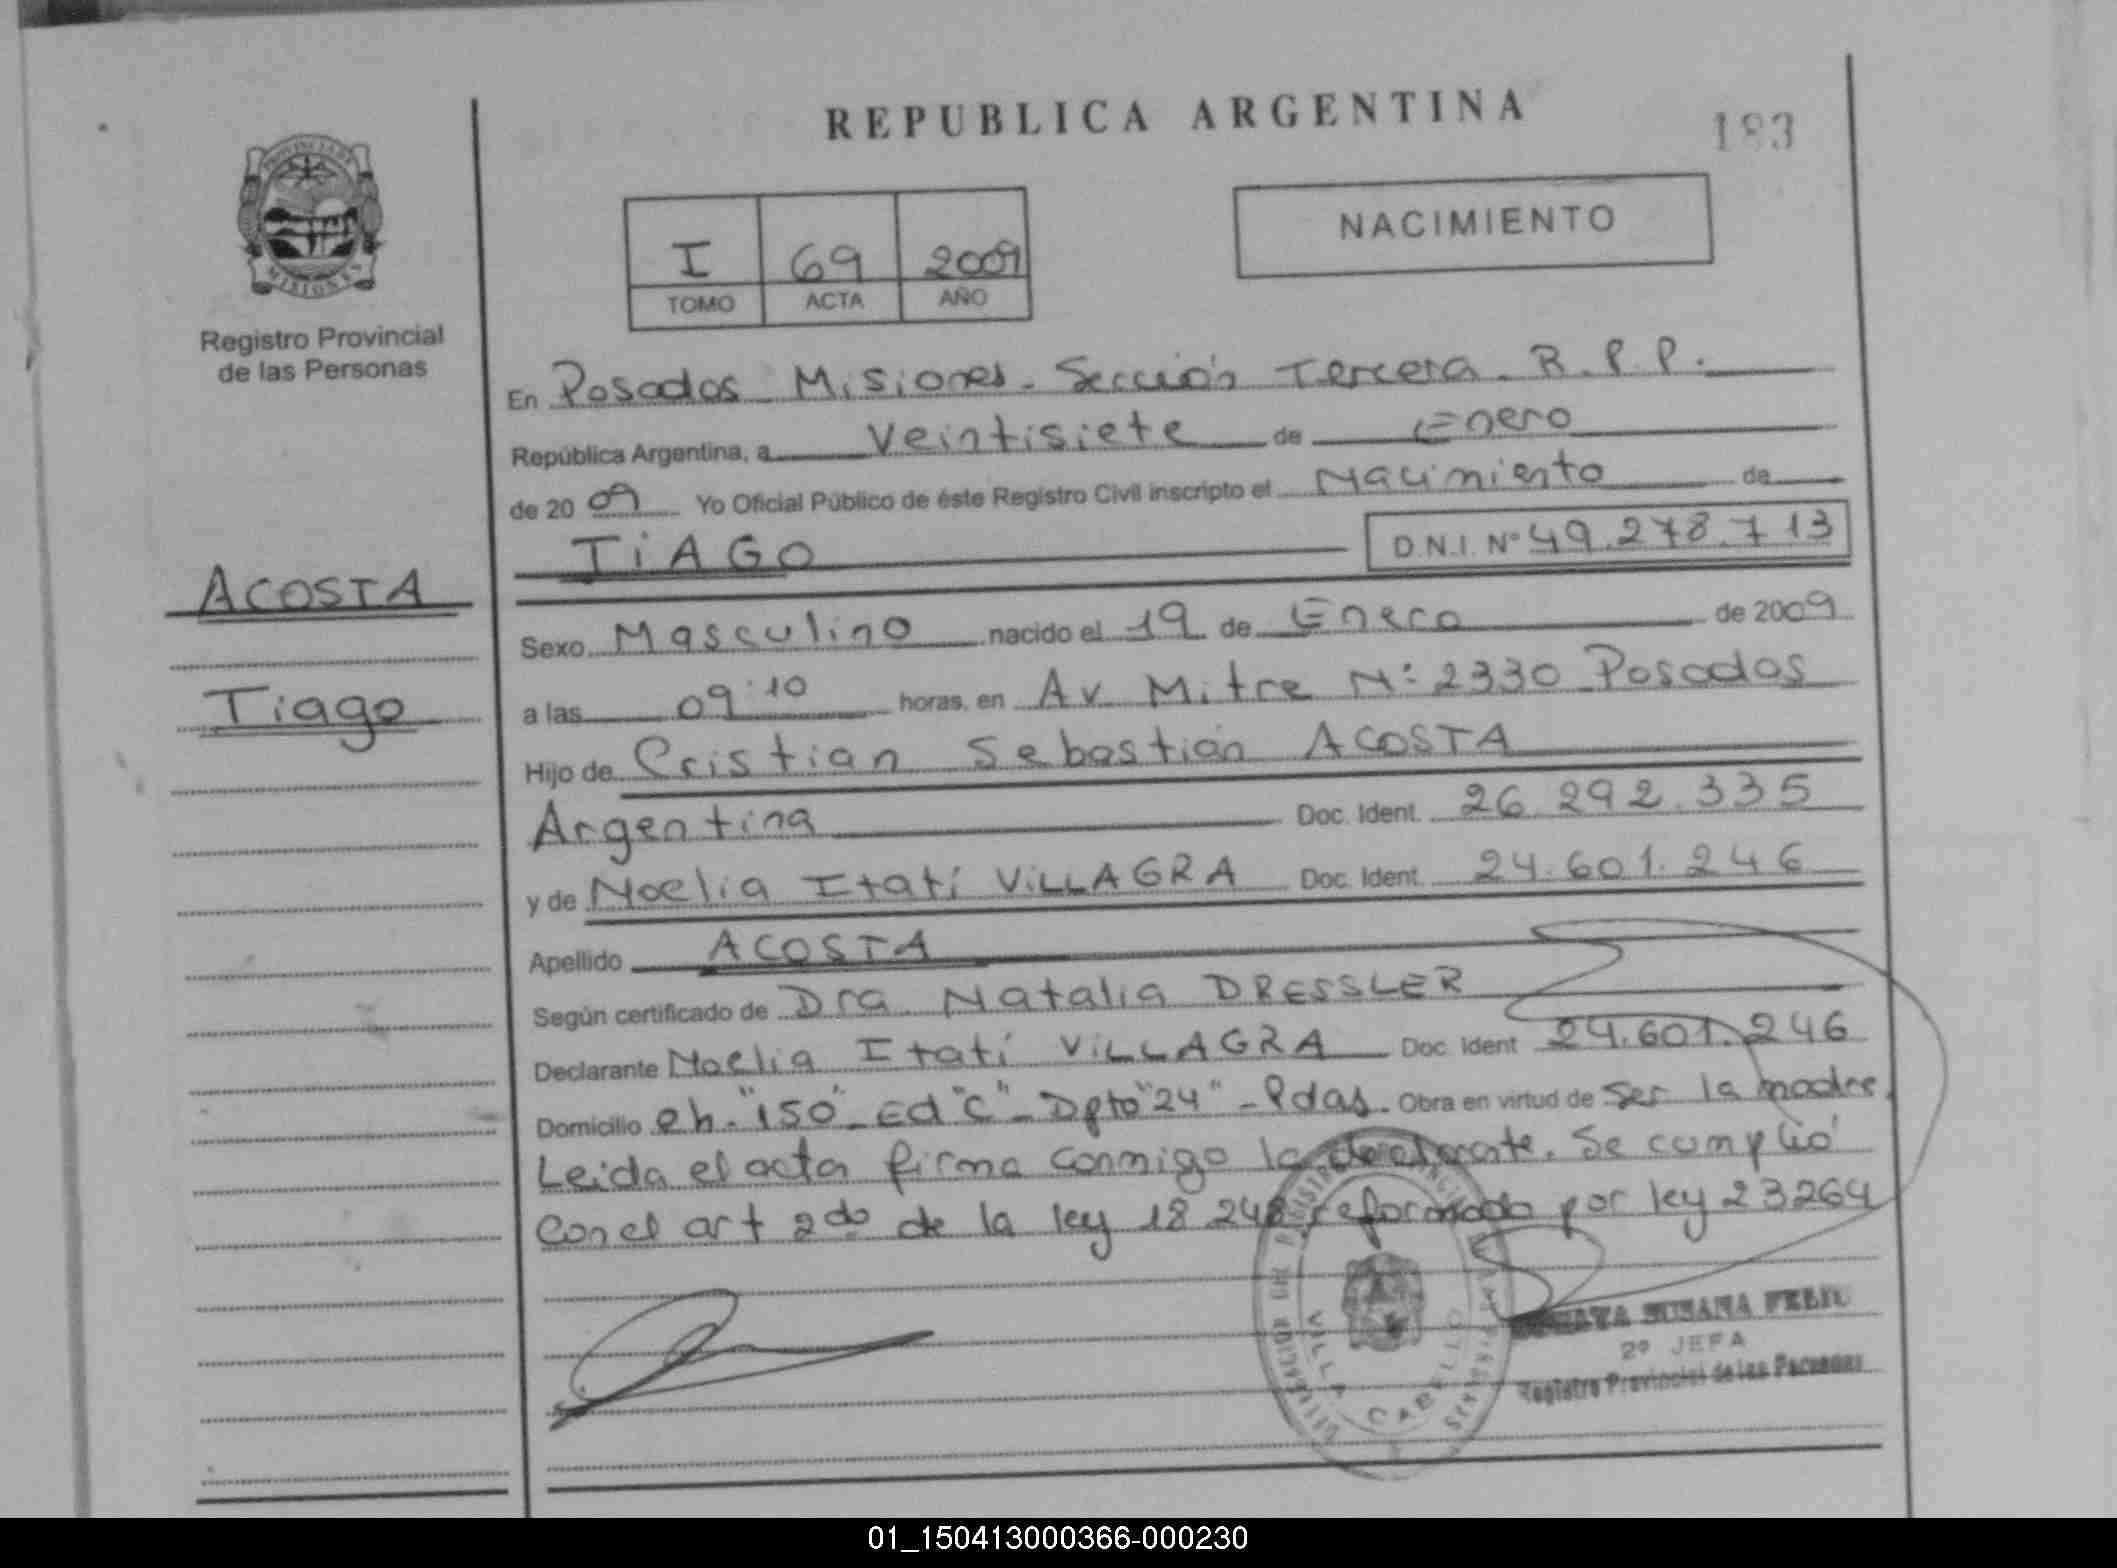 REPUBLICA ARGENTINA
183
PROVINCIA DE
MISIONES
Registro Provincial
de las Personas
I 69 2009
TOMO ACTA AÑO
NACIMIENTO
En Posadas Misiones. Sección Tercera. R.P.P.
República Argentina, a Veintisiete de Enero
de 2009 Yo Oficial Público de éste Registro Civil inscripto el Nacimiento de
TiAGO D.N.I. Nº 49.278.713
ACOSTA
Tiago
Sexo Masculino nacido el 19 de Enero de 2009
a las 09:10 horas, en Av. Mitre N: 2330 Posadas
Hijo de Cristian Sebastián ACOSTA
Argentina Doc. Ident. 26.292.335
y de Noelia Itatí ViLLAGRA Doc. Ident. 24.601.246
Apellido ACOSTA
Según certificado de Dra Natalia DRESSLER
Declarante Noelia Itatí ViLLAGRA Doc. Ident 24.601.246
Domicilio Ch. "150" Ed "C" - Dpto "24" - Pdas. Obra en virtud de Ser la madre.
Leida el acta firma conmigo la declarante. Se cumplió
con el art 2do de la ley 18 248 reformada por ley 23264
VILLA CABELLO
SUSANA FELIU
2º JEFA
Registro Provincial de las Personas
01_150413000366-000230